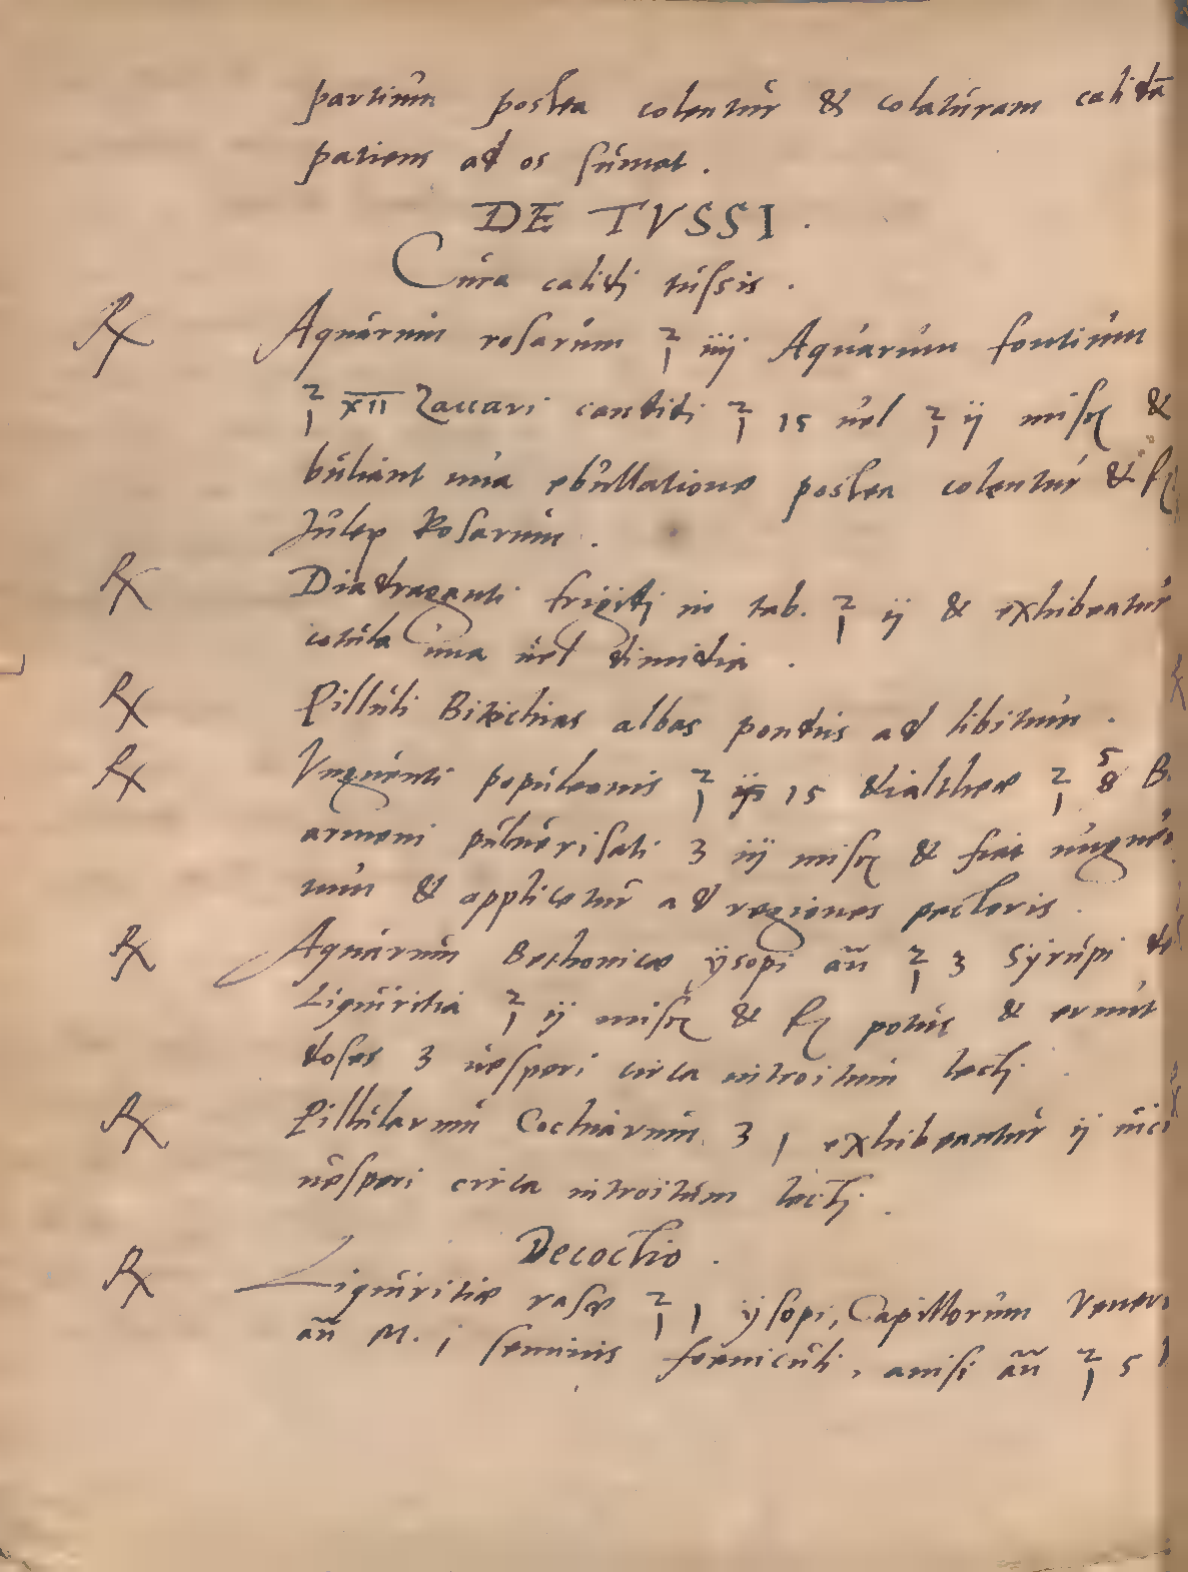 partium postea colentur & colaturam calidā
patiens ad os sumat .
DE TVSSI .
Cura calidi tussis .
℞ Aquarum rosarum ℥ iiij Aquarum fontium
℥ XII Zaccari candidi ℥ 15 uel ℥ ij misc &
buliant una ebullatione postea colentur &
Julep Rosarum .
℞ Diadraganti frigidi in tab. ℥ ij & exhibeatur
cotula una uel dimidia .
℞ Pilluli Bitichias albas pondus ad libitum .
℞ Vnguenti populeonis ℥ 15 dialtheæ ℥ B.
armeni puluerisati 3 iij misc & fiat unguen
tum & applicetur ad regiones pectoris .
℞ Aquarum Bethonicæ ysopi añ ℥ 3 Syrupi de
Liquiritia ℥ ij misc & potus & erunt
doses 3 uesperi circa introitum lecti .
℞ Pillularum Cochiarum 3 1 exhibeantur ij
uesperi circa introitum lecti .
Decoctio .
℞ Liquiritiæ rasæ ℥ 1 ysopi, Capillorum Vener
añ M. j seminis foeniculi, anisi añ ℥ 5